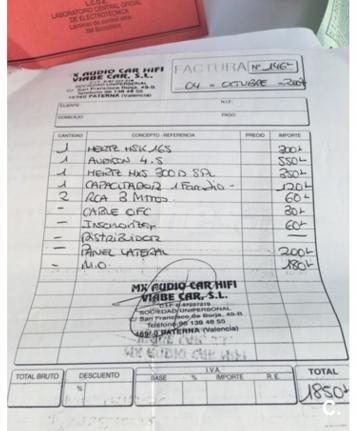 L.C.O.E.
LABORATORIO CENTRAL OFICIAL
DE ELECTROTECNICA
MX AUDIO CAR HIFI
VIABE CAR, S.L.
SOCIEDAD UNIPERSONAL
C/ San Francisco de Borja, 49-B
Teléfono 96 138 48 55
PATERNA (Valencia)
FACTURA Nº 1462
04 - OCTUBRE -
CLIENTE
N.I.F.
DOMICILIO
PAGO
CANTIDAD CONCEPTO - REFERENCIA PRECIO IMPORTE
1 HERTZ HSK 165 300
1 AUDISON 4.5 550
1 HERTZ HXS 300D SPL 350
1 CAPACITADOR 1 FARADIO - 120
2 RCA 3 MTROS 60
- CABLE OFC 30
- 60
- DISTRIBUIDOR -
- PANEL LATERAL 200
- M.O. 180
MX AUDIO CAR HIFI
VIABE CAR, S.L.
SOCIEDAD UNIPERSONAL
C/ San Francisco de Borja, 49-B
Teléfono 96 138 48 55
PATERNA (Valencia)
TOTAL BRUTO DESCUENTO I.V.A. TOTAL
% BASE % IMPORTE R.E.
1850
C.